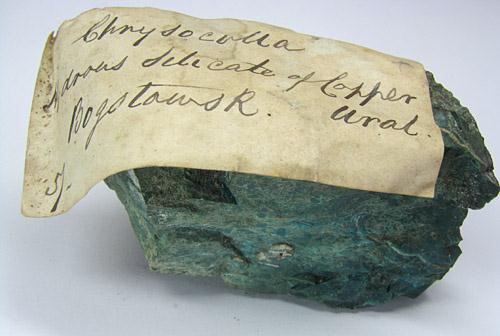 Chrysocolla
Hydrous Silicate of Copper
Bogstowsk Ural.
5/.